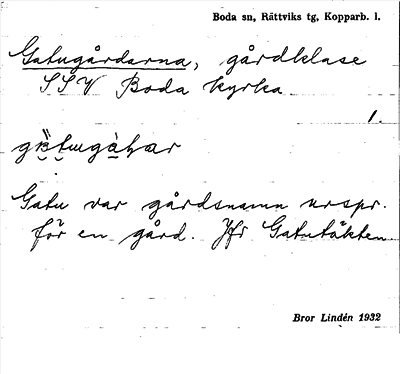 Boda sn, Rättviks tg, Kopparb. l.
Gatugårdarna, gårdklase
SSV Boda kyrka
1.
Gatu var gårdsnamn urspr.
för en gård. Jfr Gatutäkten
Bror Lindén 1932